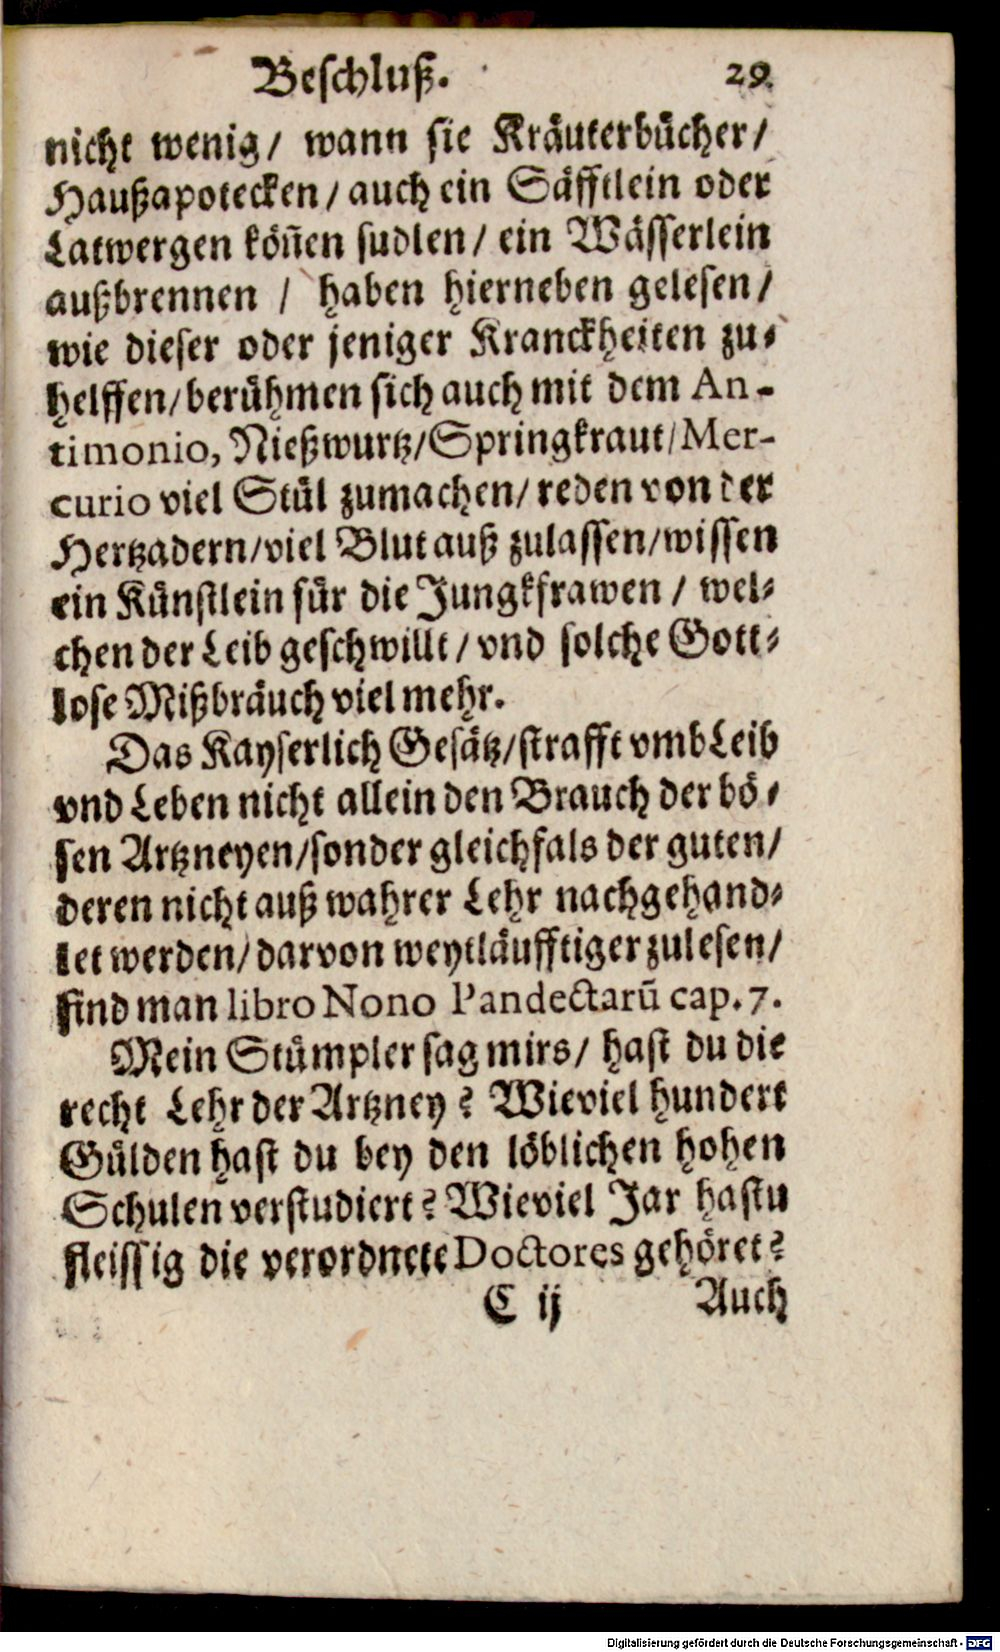 Beschluß. 29.
nicht wenig/ wann sie Kräuterbücher/
Haußapotecken/ auch ein Säfftlein oder
Latwergen köñen sudlen/ ein Wässerlein
außbrennen / haben hierneben gelesen/
wie dieser oder jeniger Kranckheiten zu-
helffen/ berühmen sich auch mit dem An-
timonio, Nießwurtz/ Springkraut/ Mer-
curio viel Stül zumachen/ reden von der
Hertzadern/ viel Blut auß zulassen/ wissen
ein Künstlein für die Jungkfrawen / wel-
chen der Leib geschwillt/ vnd solche Gott-
lose Mißbräuch viel mehr.
Das Kayserlich Gesätz/ strafft vmb Leib
vnd Leben nicht allein den Brauch der bö-
sen Artzneyen/ sonder gleichfals der guten/
deren nicht auß wahrer Lehr nachgehand-
let werden/ darvon weytläufftiger zulesen/
find man libro Nono Pandectarũ cap. 7.
Mein Stümpler sag mirs/ hast du die
recht Lehr der Artzney? Wieviel hundert
Gülden hast du bey den löblichen hohen
Schulen verstudiert? Wieviel Jar hastu
fleissig die verordnete Doctores gehöret?
C ij Auch
Digitalisierung gefördert durch die Deutsche Forschungsgemeinschaft - DFG